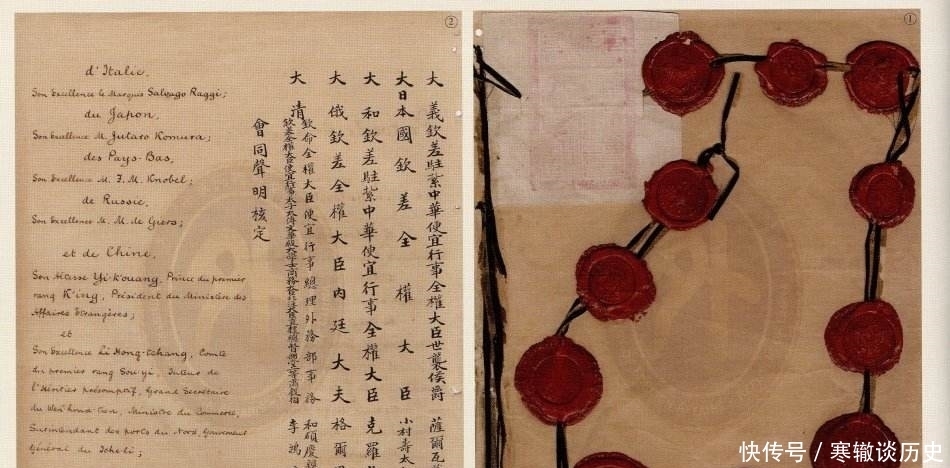 ②
d'Italie,
Son Excellence le Marquis Salvago Raggi;
du Japon,
Son Excellence M. Jutaro Komura;
des Pays-Bas,
Son Excellence M. F. M. Knobel;
de Russie,
Son Excellence M. M. de Giers;
et de Chine,
Son Altesse Yi-K'ouang, Prince du premier
rang K'ing, Président du Ministère des
Affaires Etrangères;
et
Son Excellence Li Hong-tchang, Comte
du premier rang Sou-yi, Tuteur de
l'Héritier présomptif, Grand Secrétaire
du Wen-houa tien, Ministre du Commerce,
Surintendant des ports du Nord, Gouverneur
Général du Tcheli;
大 義欽差駐紮中華便宜行事全權大臣世襲侯爵 薩爾瓦
大日本國欽差全權大臣 小村壽太
大 和欽差駐紮中華便宜行事全權大臣 克羅
大 俄欽差全權大臣內廷大夫 格爾
大 清欽命全權大臣便宜行事總理外務部事務 和碩慶
欽差全權大臣便宜行事太子太傅文華殿大學士商務大臣北洋大臣直隸總督 李鴻
會同聲明核定
①
快传号 / 寒辙谈历史